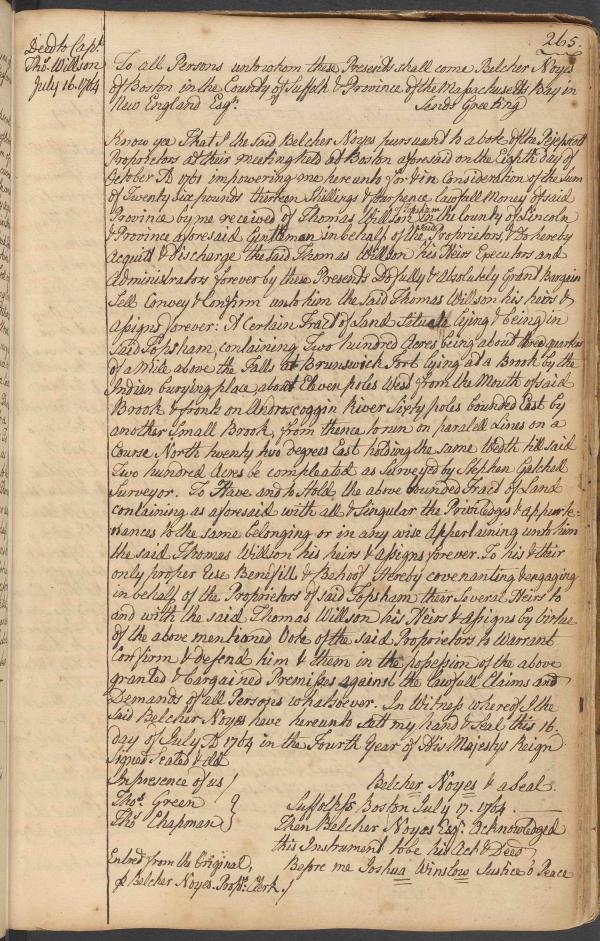 265.
Deed to Capt.
Tho.s Willson
July 16. 1764
To all Persons unto whom these Presents shall come Belcher Noyes
of Boston in the County of Suffolk & Province of the Massachusetts Bay in
New England Esq.r Sends Greeting
Know yee That I the said Belcher Noyes pursuant to a vote of the Pejepscott
Proprietors at their meeting held at Boston aforesaid on the Eighth day of
October AD 1761 impowering me hereunto for & in Consideration of the Sum
of Twenty Six pounds thirteen Shillings & fourpence Lawfull Money of said
Province by me received of Thomas Willson of Topsham in the County of Lincoln
& Province aforesaid Gentleman in behalf of the said Proprietors, & Do hereby
Acquitt & discharge the said Thomas Willson his Heirs Executors and
Administrators forever by these Presents Do fully & Absolutely Grant Bargain
Sell Convey & Confirm unto him the Said Thomas Willson his heirs &
Assigns forever: A Certain Tract of Land Situate lying & being in
Said Topsham, containing Two hundred Acres being about three quarters
of a Mile above the Falls at Brunswick Fort lying at a Brook by the
Indian burying place about Eleven poles West from the Mouth of said
Brook & fronts on Androscoggin River Sixty poles bounded East by
another Small Brook, from thence to run on paralell Lines on a
Course North twenty two degrees East holding the same Wedth till said
Two hundred Acres be compleated as Surveyed by Stephen Gatchell
Surveyor. To Have and to Hold the above bounded Tract of Land
containing as aforesaid with all & Singular the Priviledges & appurte=
nances to the same belonging or in any wise Appertaining unto him
the said Thomas Willson his heirs & Assigns forever. To his & their
only proper Use Benefitt & Behoof Hereby covenanting & engaging
in behalf of the Proprietors of said Topsham their Several Heirs to
and with the said Thomas Willson his Heirs & Assigns by virtue
of the above mentioned Vote of the said Proprietors to Warrant
Confirm & Defend him & them in the possession of the above
granted & Bargained Premisses against the Lawfull Claims and
Demands of all Persons whatsoever. In Witness whereof I the
said Belcher Noyes have hereunto Sett my hand & Seal this 16.
day of July AD 1764 in the Fourth Year of His Majestys Reign
Signed Sealed & dd
In presence of us
Tho.s Green
Tho.s Chapman
Belcher Noyes & a Seal.
Suffolk ss Boston July 17. 1764.
Then Belcher Noyes Esq.r Acknowledged
this Instrument to be his Act & Deed
Before me Joshua Winslow Justice o' Peace
Entred from the Original,
℘ Belcher Noyes Prop.rs Clerk.